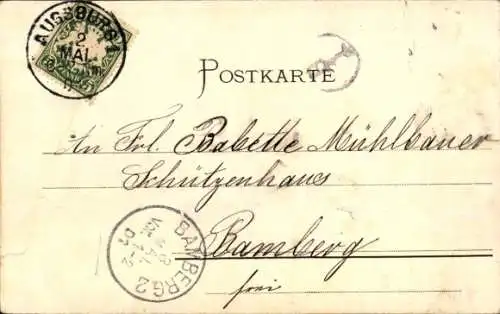 AUGSBURG 1
2
MAI
POSTKARTE
An Frl. Babette Mühlbauer
Schützenhaus
Bamberg
frei
BAMBERG 2